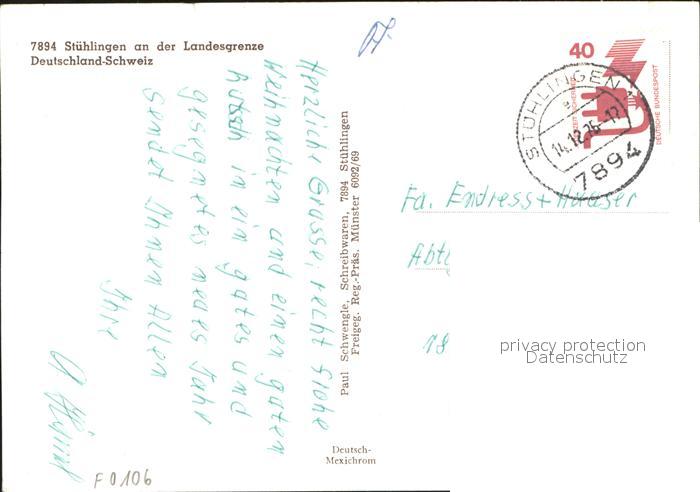 7894 Stühlingen an der Landesgrenze
Deutschland-Schweiz
40
DEUTSCHE BUNDESPOST
STÜHLINGEN
14.12.75-17
7894
Herzliche Grüsse, recht frohe
Weihnachten und einen guten
Rutsch in ein gutes und
gesegnetes neues Jahr
sendet Ihnen Allen
Ihre
Paul Schwengle, Schreibwaren, 7894 Stühlingen
Freigeg. Reg.-Präs. Münster 6092/69
Fa. Endress+Hauser
Abt
78
privacy protection
Datenschutz
Deutsch-
Mexichrom
F 0106